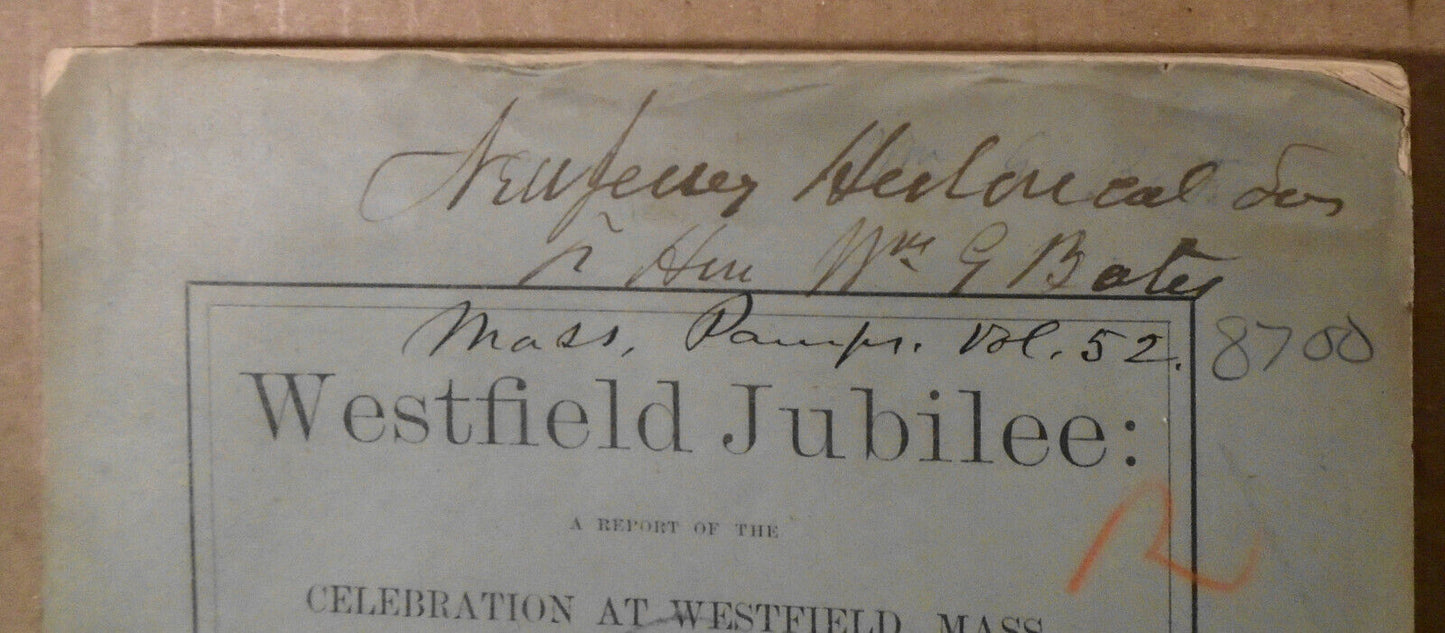 New Jersey Historical Soc
Fr Hon Wm G Bates
Mass. Pamps. Vol. 52. 8700
Westfield Jubilee:
A REPORT OF THE
CELEBRATION AT WESTFIELD, MASS